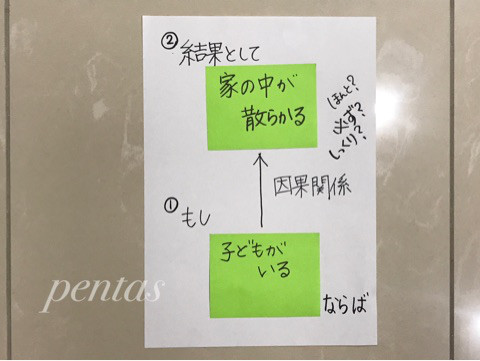 ②結果として
家の中が
散らかる
ほんと?
必ず?
しっくり?
因果関係
①もし
子どもが
いる
ならば
pentas